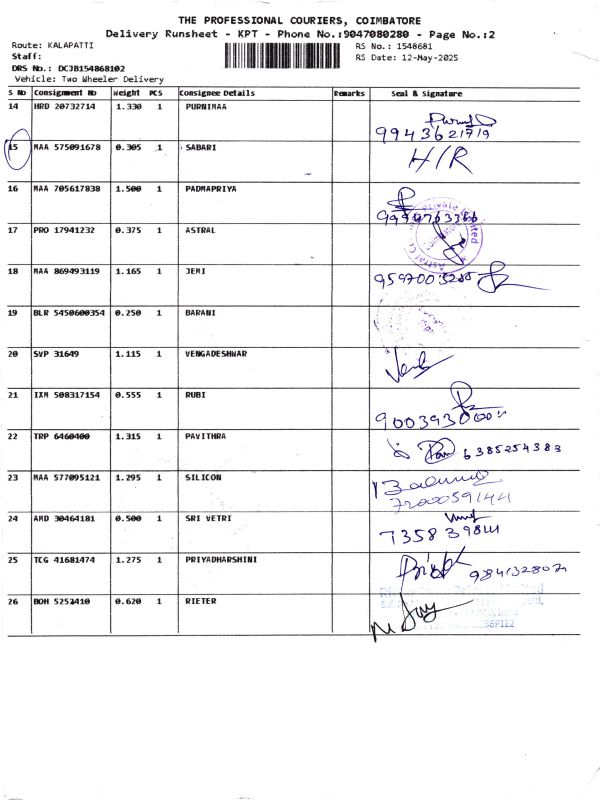 THE PROFESSIONAL COURIERS, COIMBATORE
Delivery Runsheet - KPT - Phone No.:9047080280 - Page No.:2
Route: KALAPATTI
RS No.: 1548681
Staff:
RS Date: 12-May-2025
DRS No.: DCJB154868102
Vehicle: Two Wheeler Delivery
S No Consignment No Weight PCS Consignee Details Remarks Seal & Signature
14 HRD 20732714 1.330 1 PURNIMAA
9943621719
15 MAA 575091678 0.305 1 SABARI H/R
16 MAA 705617838 1.500 1 PADMAPRIYA
17 PRO 17941232 0.375 1 ASTRAL
18 MAA 869493119 1.165 1 JEMI
19 BLR 5450600354 0.250 1 BARANI
20 SVP 31649 1.115 1 VENGADESHWAR
21 IXM 508317154 0.555 1 RUBI
22 TRP 6460400 1.315 1 PAVITHRA 6385254383
23 MAA 577095121 1.295 1 SILICON
7200059144
24 AMD 30464181 0.500 1 SRI VETRI
25 TCG 41681474 1.275 1 PRIYADHARSHINI
26 BOM 5252410 0.620 1 RIETER